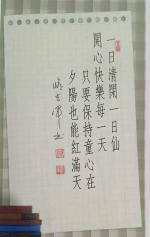 一日清閒一日仙
開心快樂每一天
只要保持童心在
夕陽也能紅滿天